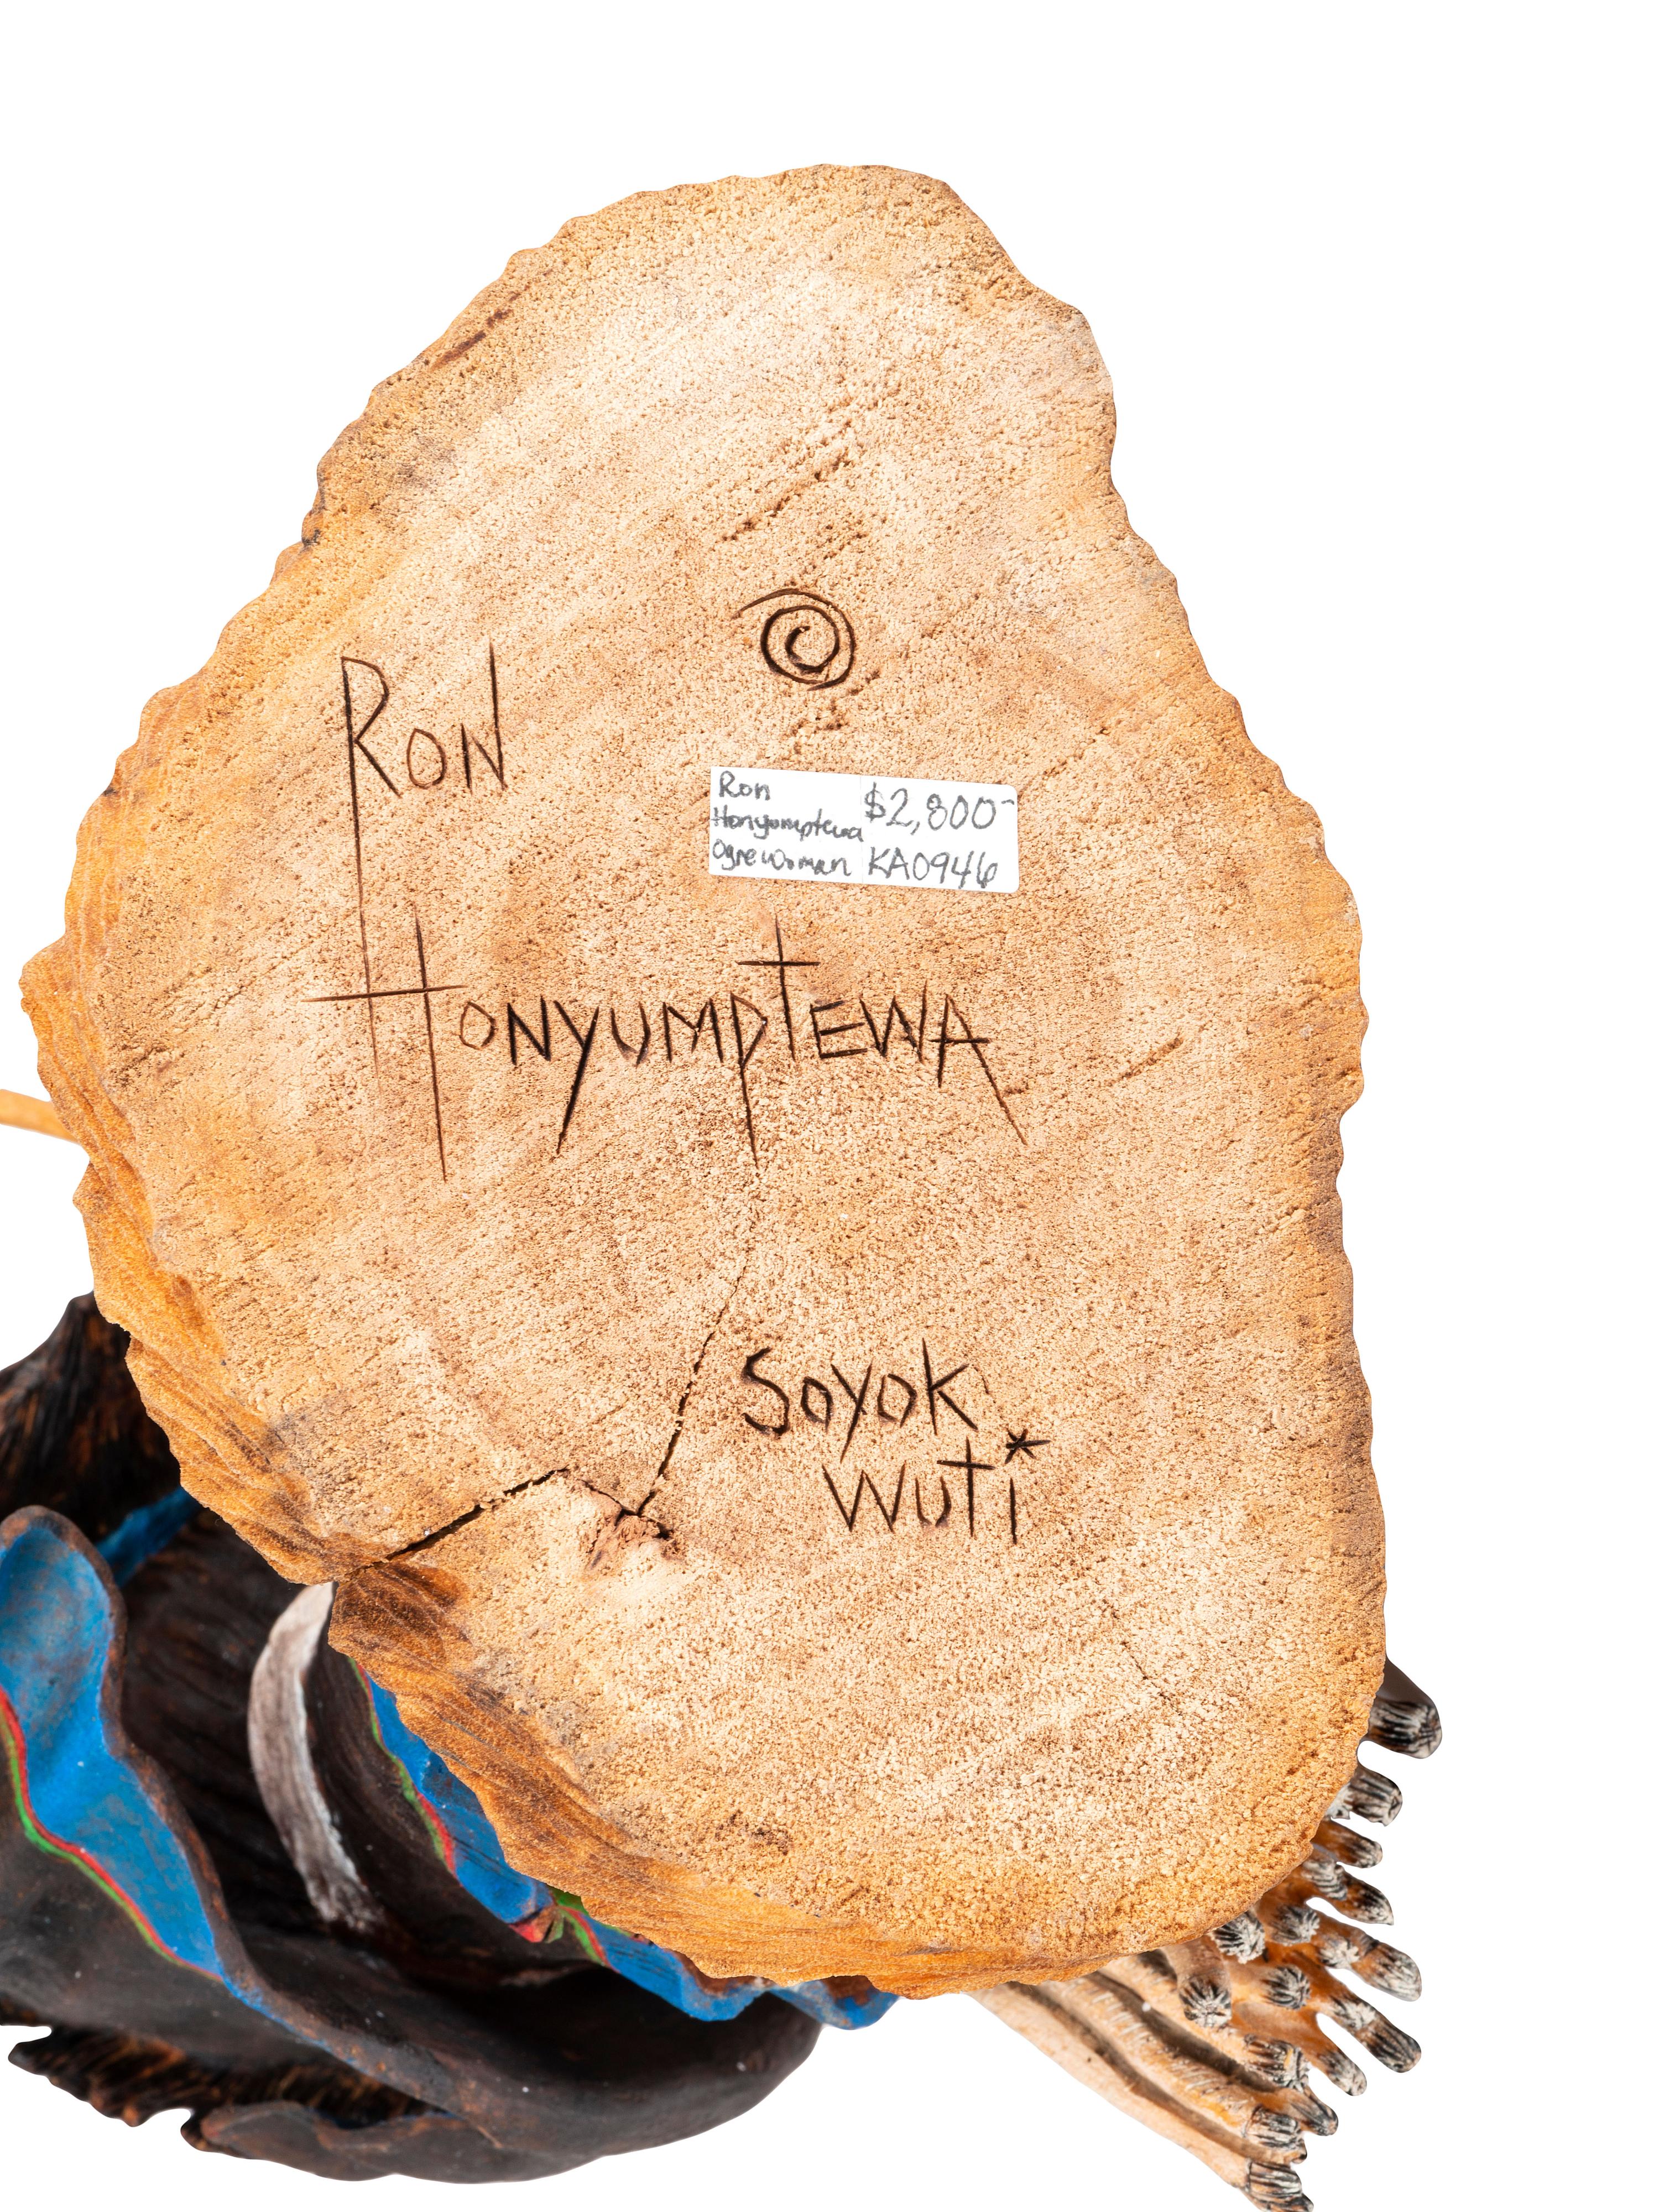 Ron
Ron
Honyumptewa
Ogre Woman
$2,800-
KA0946
HONYUMPTEWA
SOYOK
WUTi